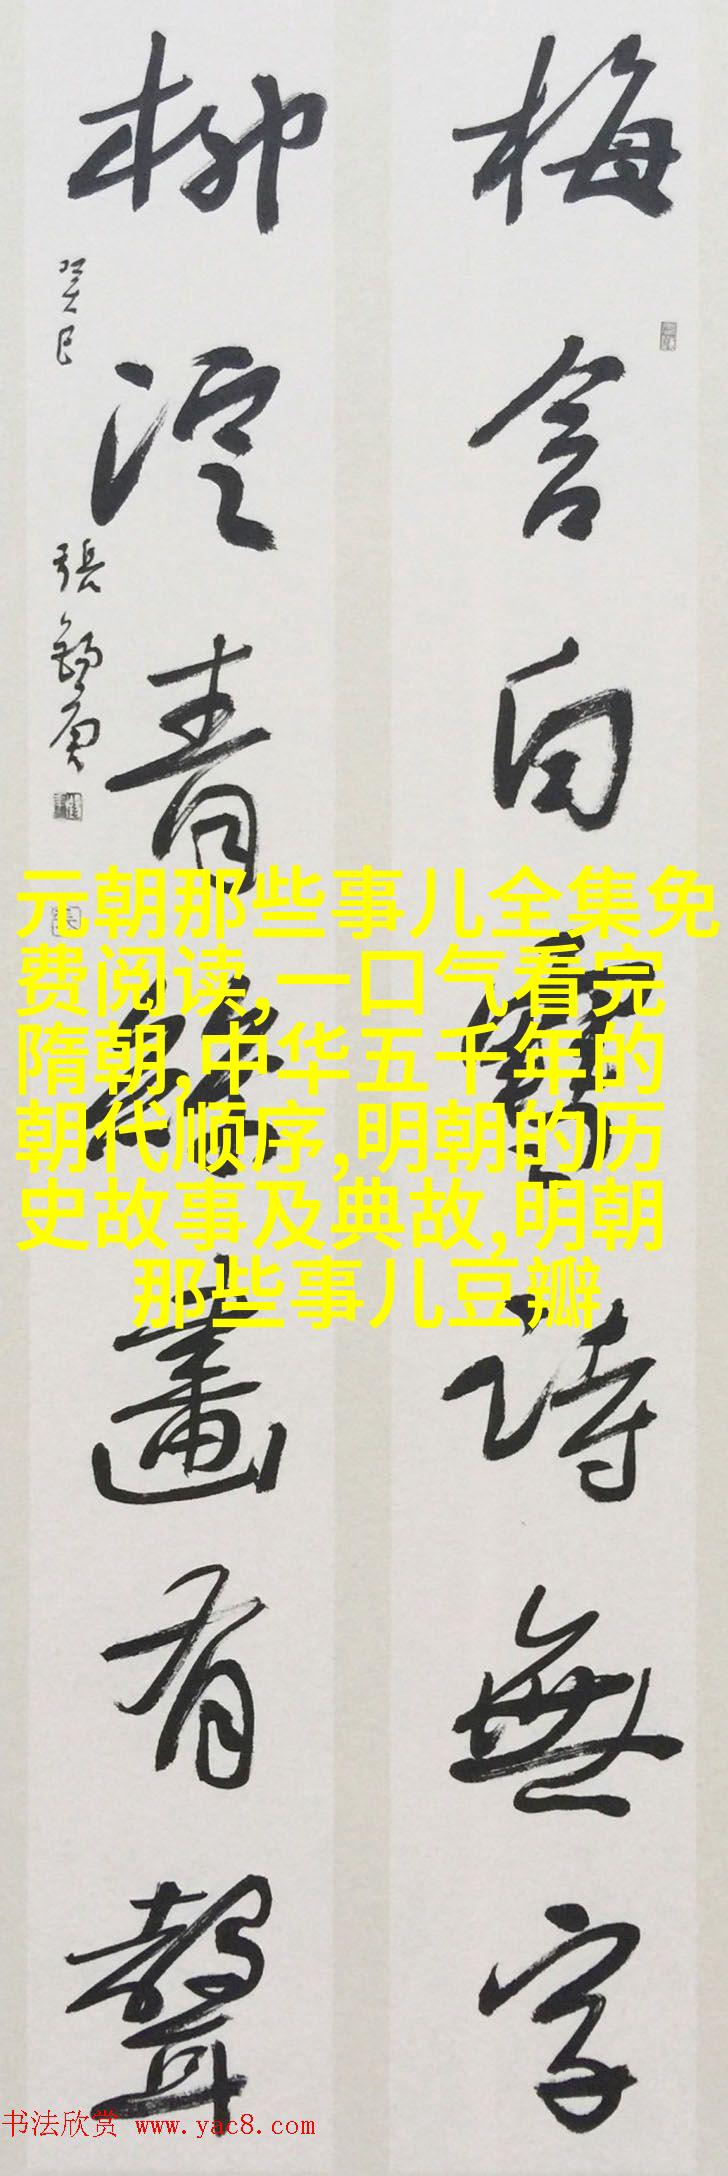 梅含白雪詩無字
柳浥青絲畫有聲
癸巳
張
元朝那些事儿全集免
费阅读,一口气看完
隋朝,中华五千年的
朝代顺序,明朝的历
史故事及典故,明朝
那些事儿豆瓣
书法欣赏 www.yac8.com